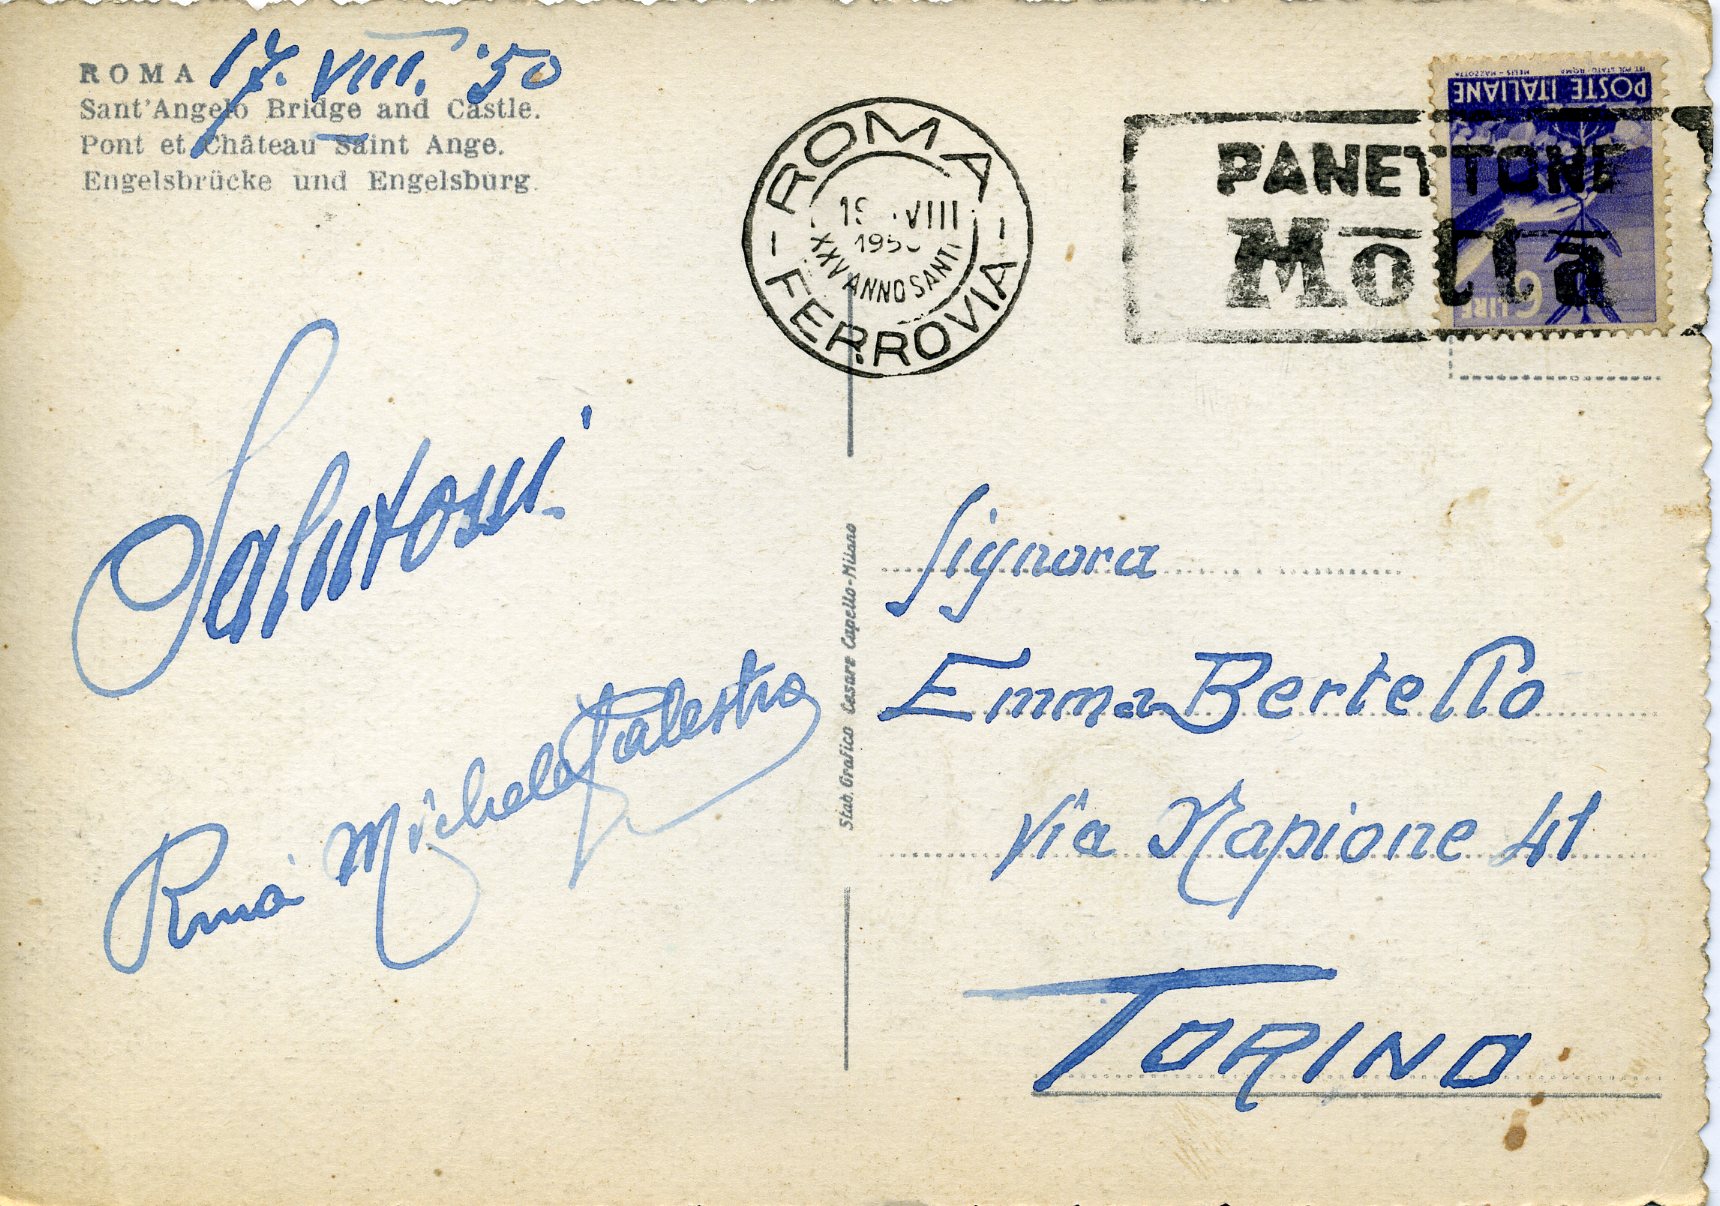 ROMA 17. VIII. '50
Sant'Angelo Bridge and Castle.
Pont et Château Saint Ange.
Engelsbrücke und Engelsburg.
Salutoni.
Michele Palestro
Stab. Grafico Cesare Capello-Milano
ROMA
VIII
195
XXV ANNO SANTO
FERROVIA
PANETTONE
Motta
POSTE ITALIANE
6 LIRE
Signora
Emma Bertello
Via Napione 41
TORINO